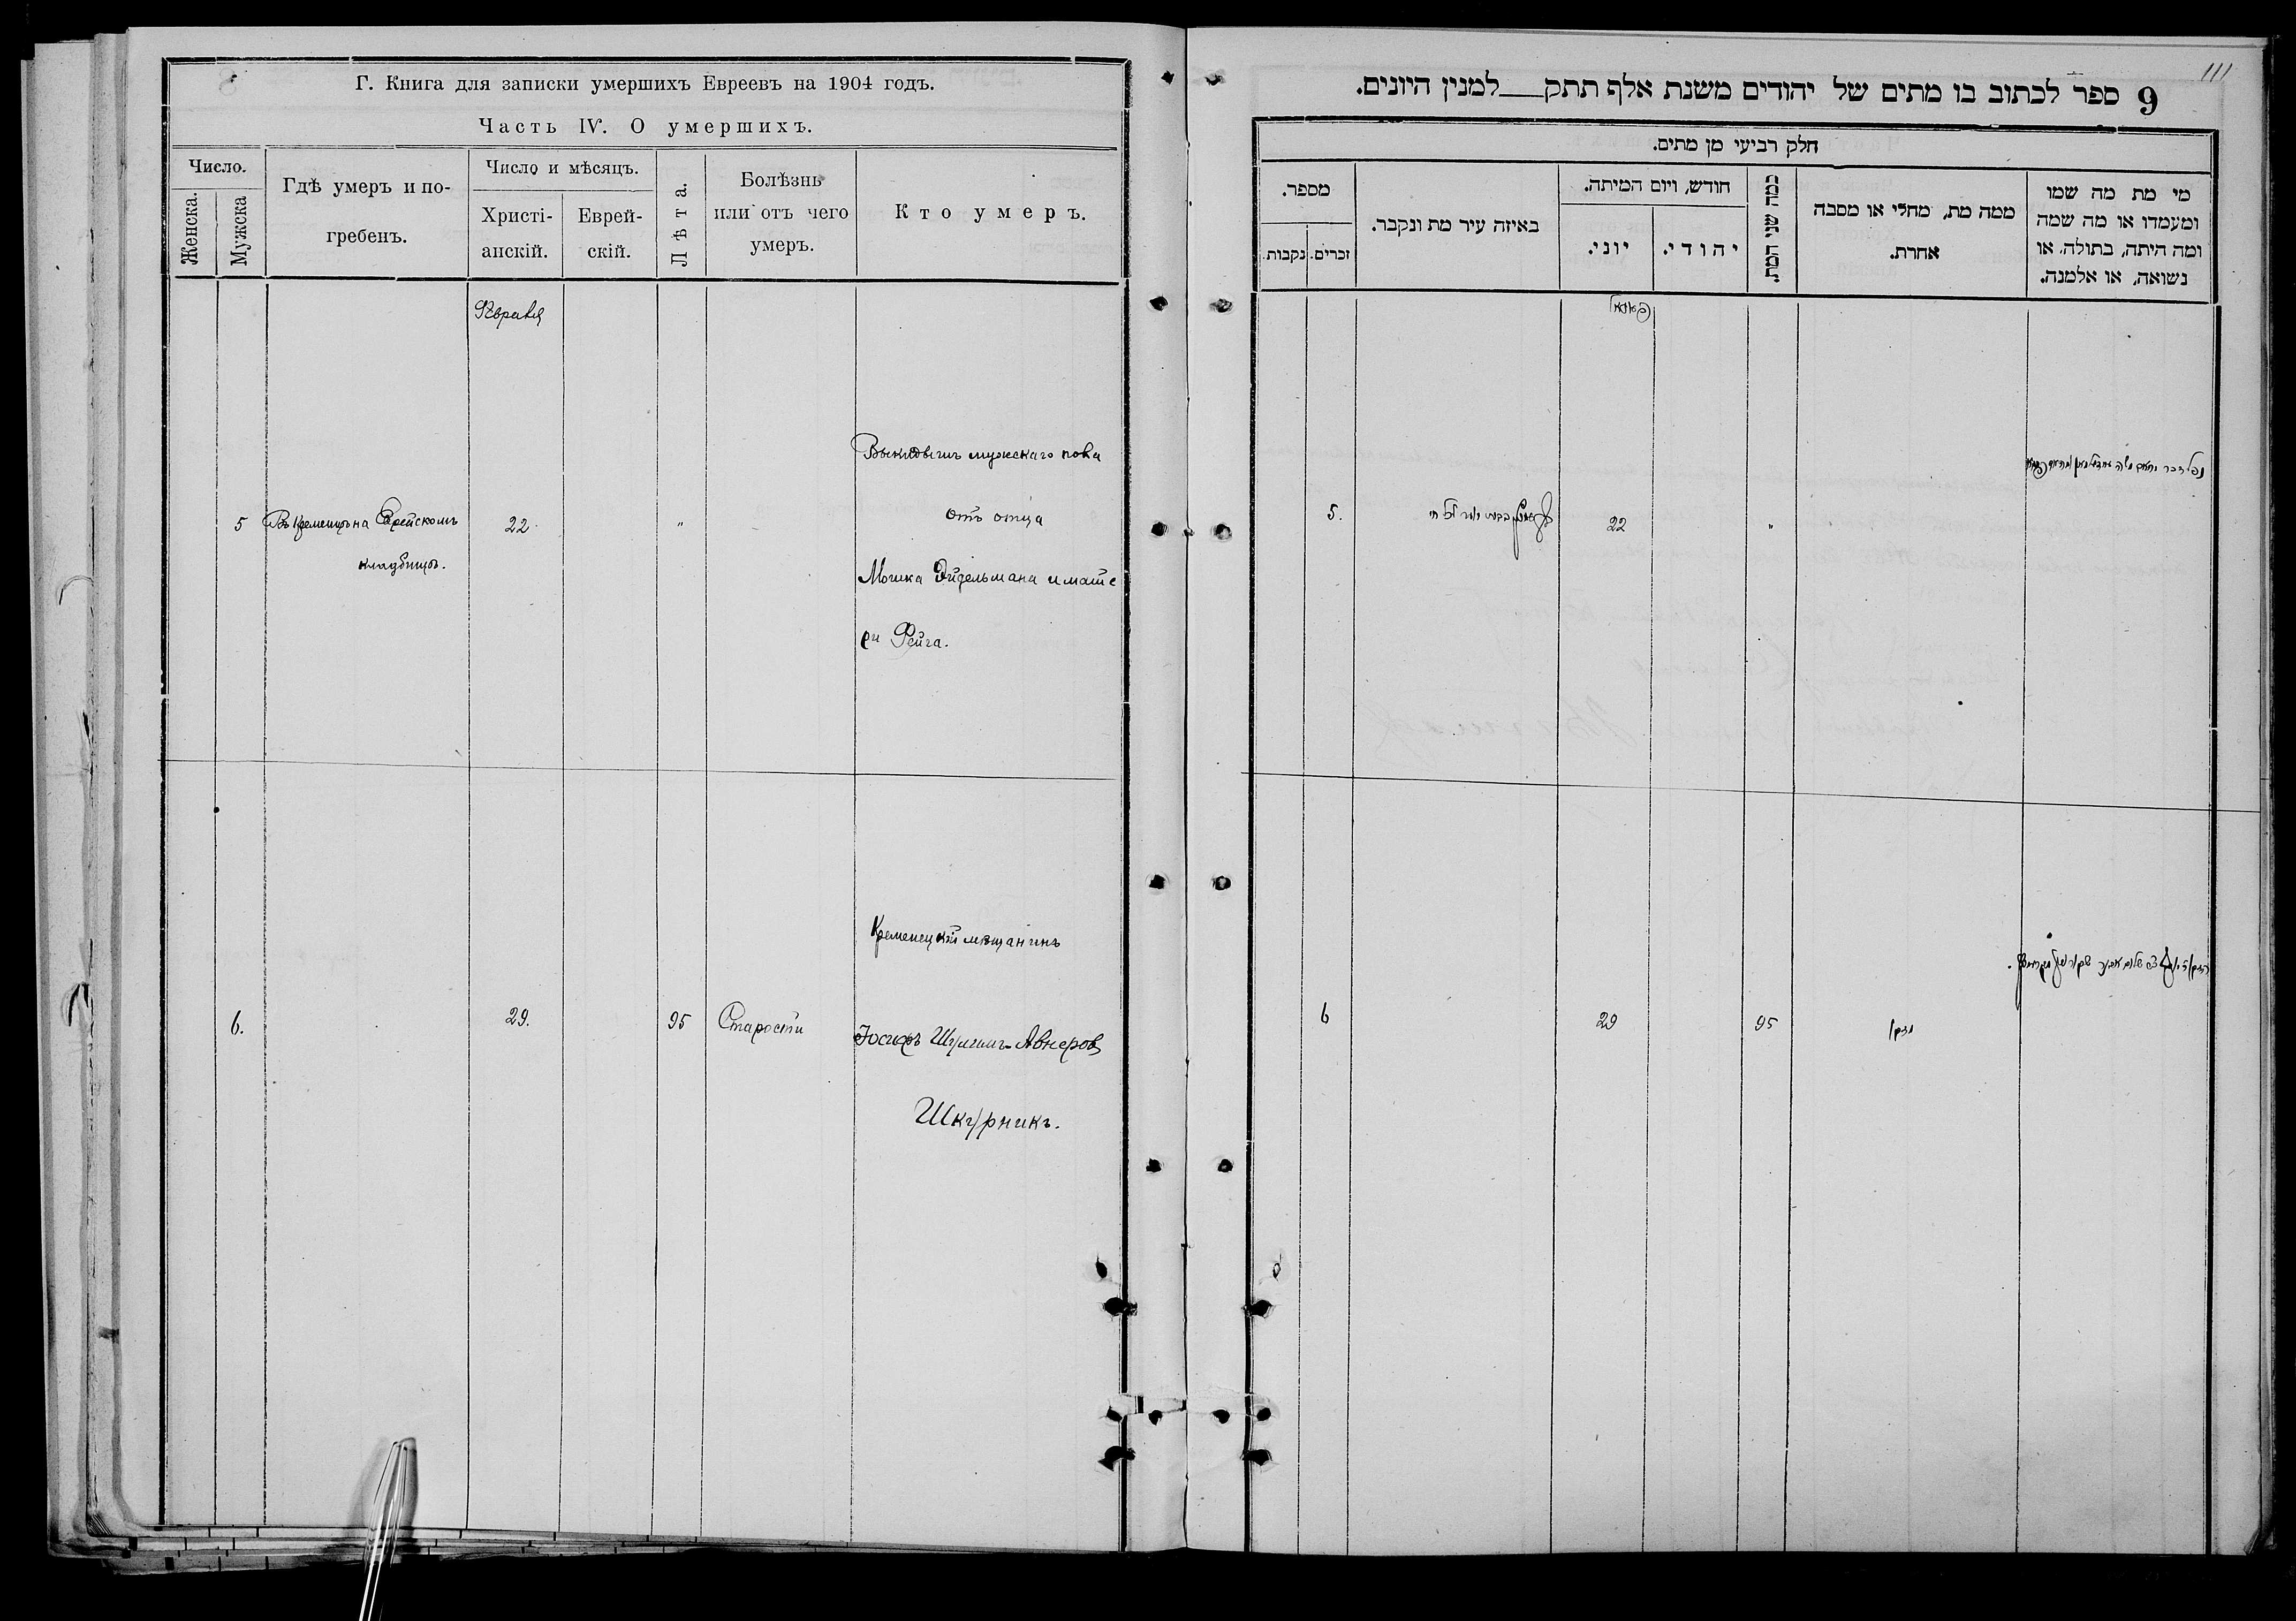 Г. Книга для записки умершихъ Евреевъ на 1904 годъ.
Часть IV. О умершихъ.
Число.
Женска.
Мужска
Гдѣ умеръ и по-
гребенъ.
Число и мѣсяцъ.
Христі-
анскій.
Еврей-
скій.
Лѣта.
Болѣзнь
или отъ чего
умеръ.
Кто умеръ.
Февраля
5
Въ Кременцѣ на Еврейскомъ
кладбищѣ.
22
"
Выкидышъ мужескаго пола
отъ отца
Мошка Эйдельмана и мате
ри Рейза.
6.
29.
95
Старости
Кременецкій мѣщанинъ
Іосифъ Шулимъ Авнеровъ
Шкурникъ.
111
9 ספר לכתוב בו מתים של יהודים משנת אלף תתק למנין היונים.
חלק רביעי מן מתים.
מספר.
נקבות.
זכרים.
באיזה עיר מת ונקבר.
חודש, ויום המיתה.
יוני.
יהודי.
כמה שני המת.
ממה מת, מחלי או מסבה
אחרת.
מי מת מה שמו
ומעמדו או מה שמה
ומה היתה, בתולה, או
נשואה, או אלמנה.
5.
22
"
נפל זכר
6
29
95
זקן